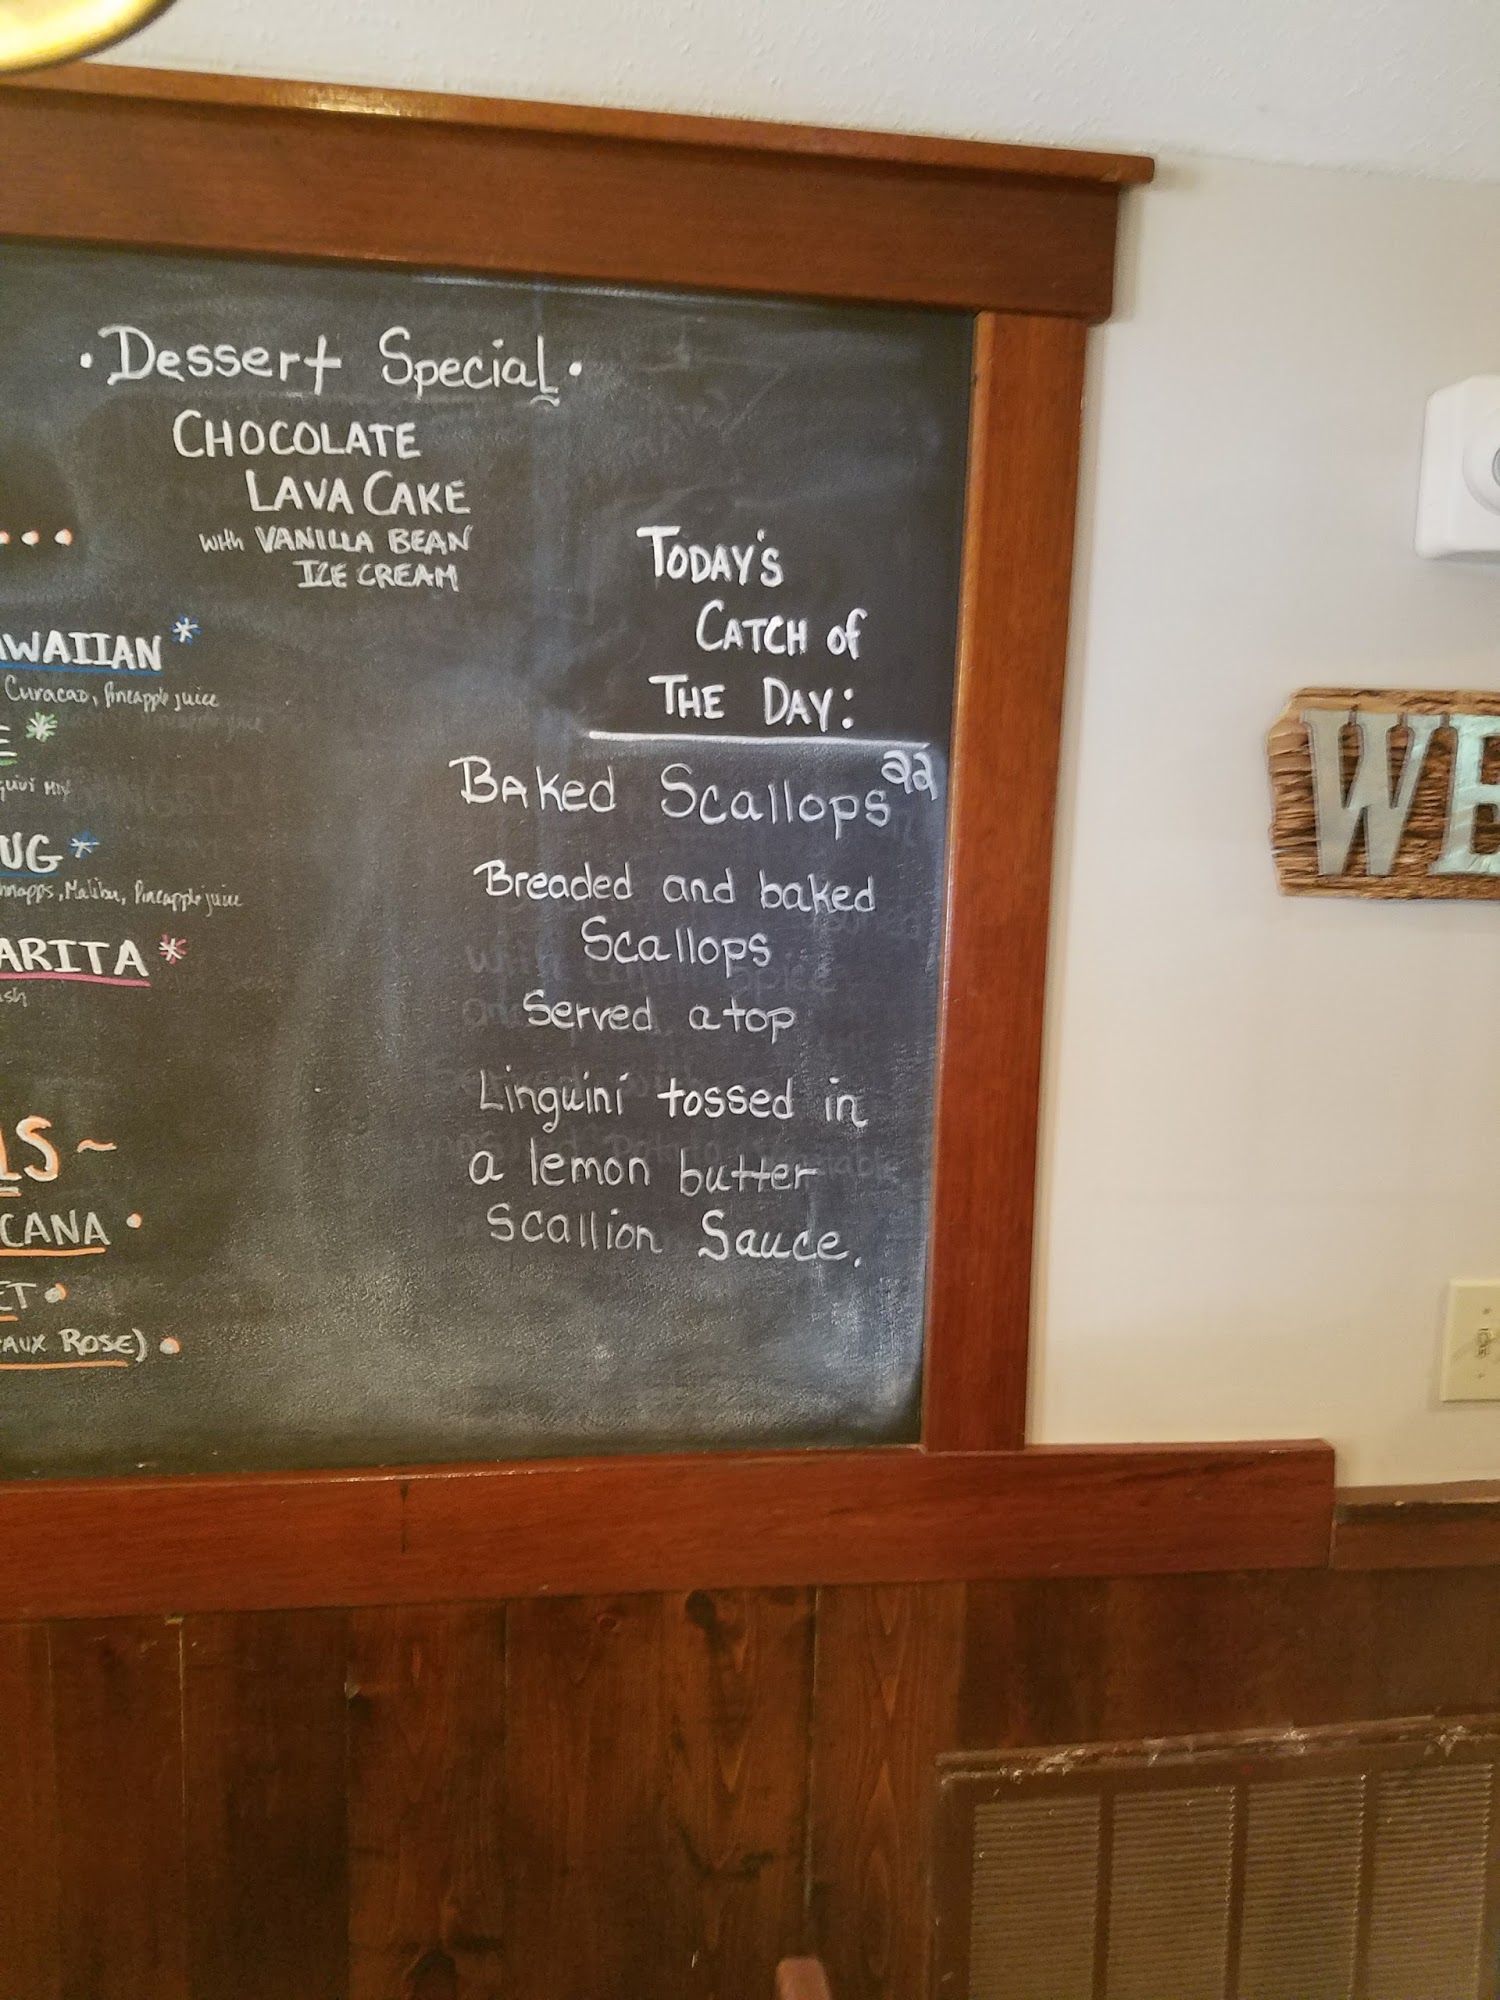 ·Dessert Special·
CHOCOLATE
LAVA CAKE
with VANILLA BEAN
ICE CREAM
AWAIIAN*
Curacao, Pineapple juice
E*
UG*
Malibu, Pineapple juice
ARITA*
LS~
CANA·
ET·
AUX ROSE)·
TODAY'S
CATCH of
THE DAY:
Baked Scallops 22
Breaded and baked
Scallops
Served atop
Linguini tossed in
a lemon butter
Scallion Sauce.
WE